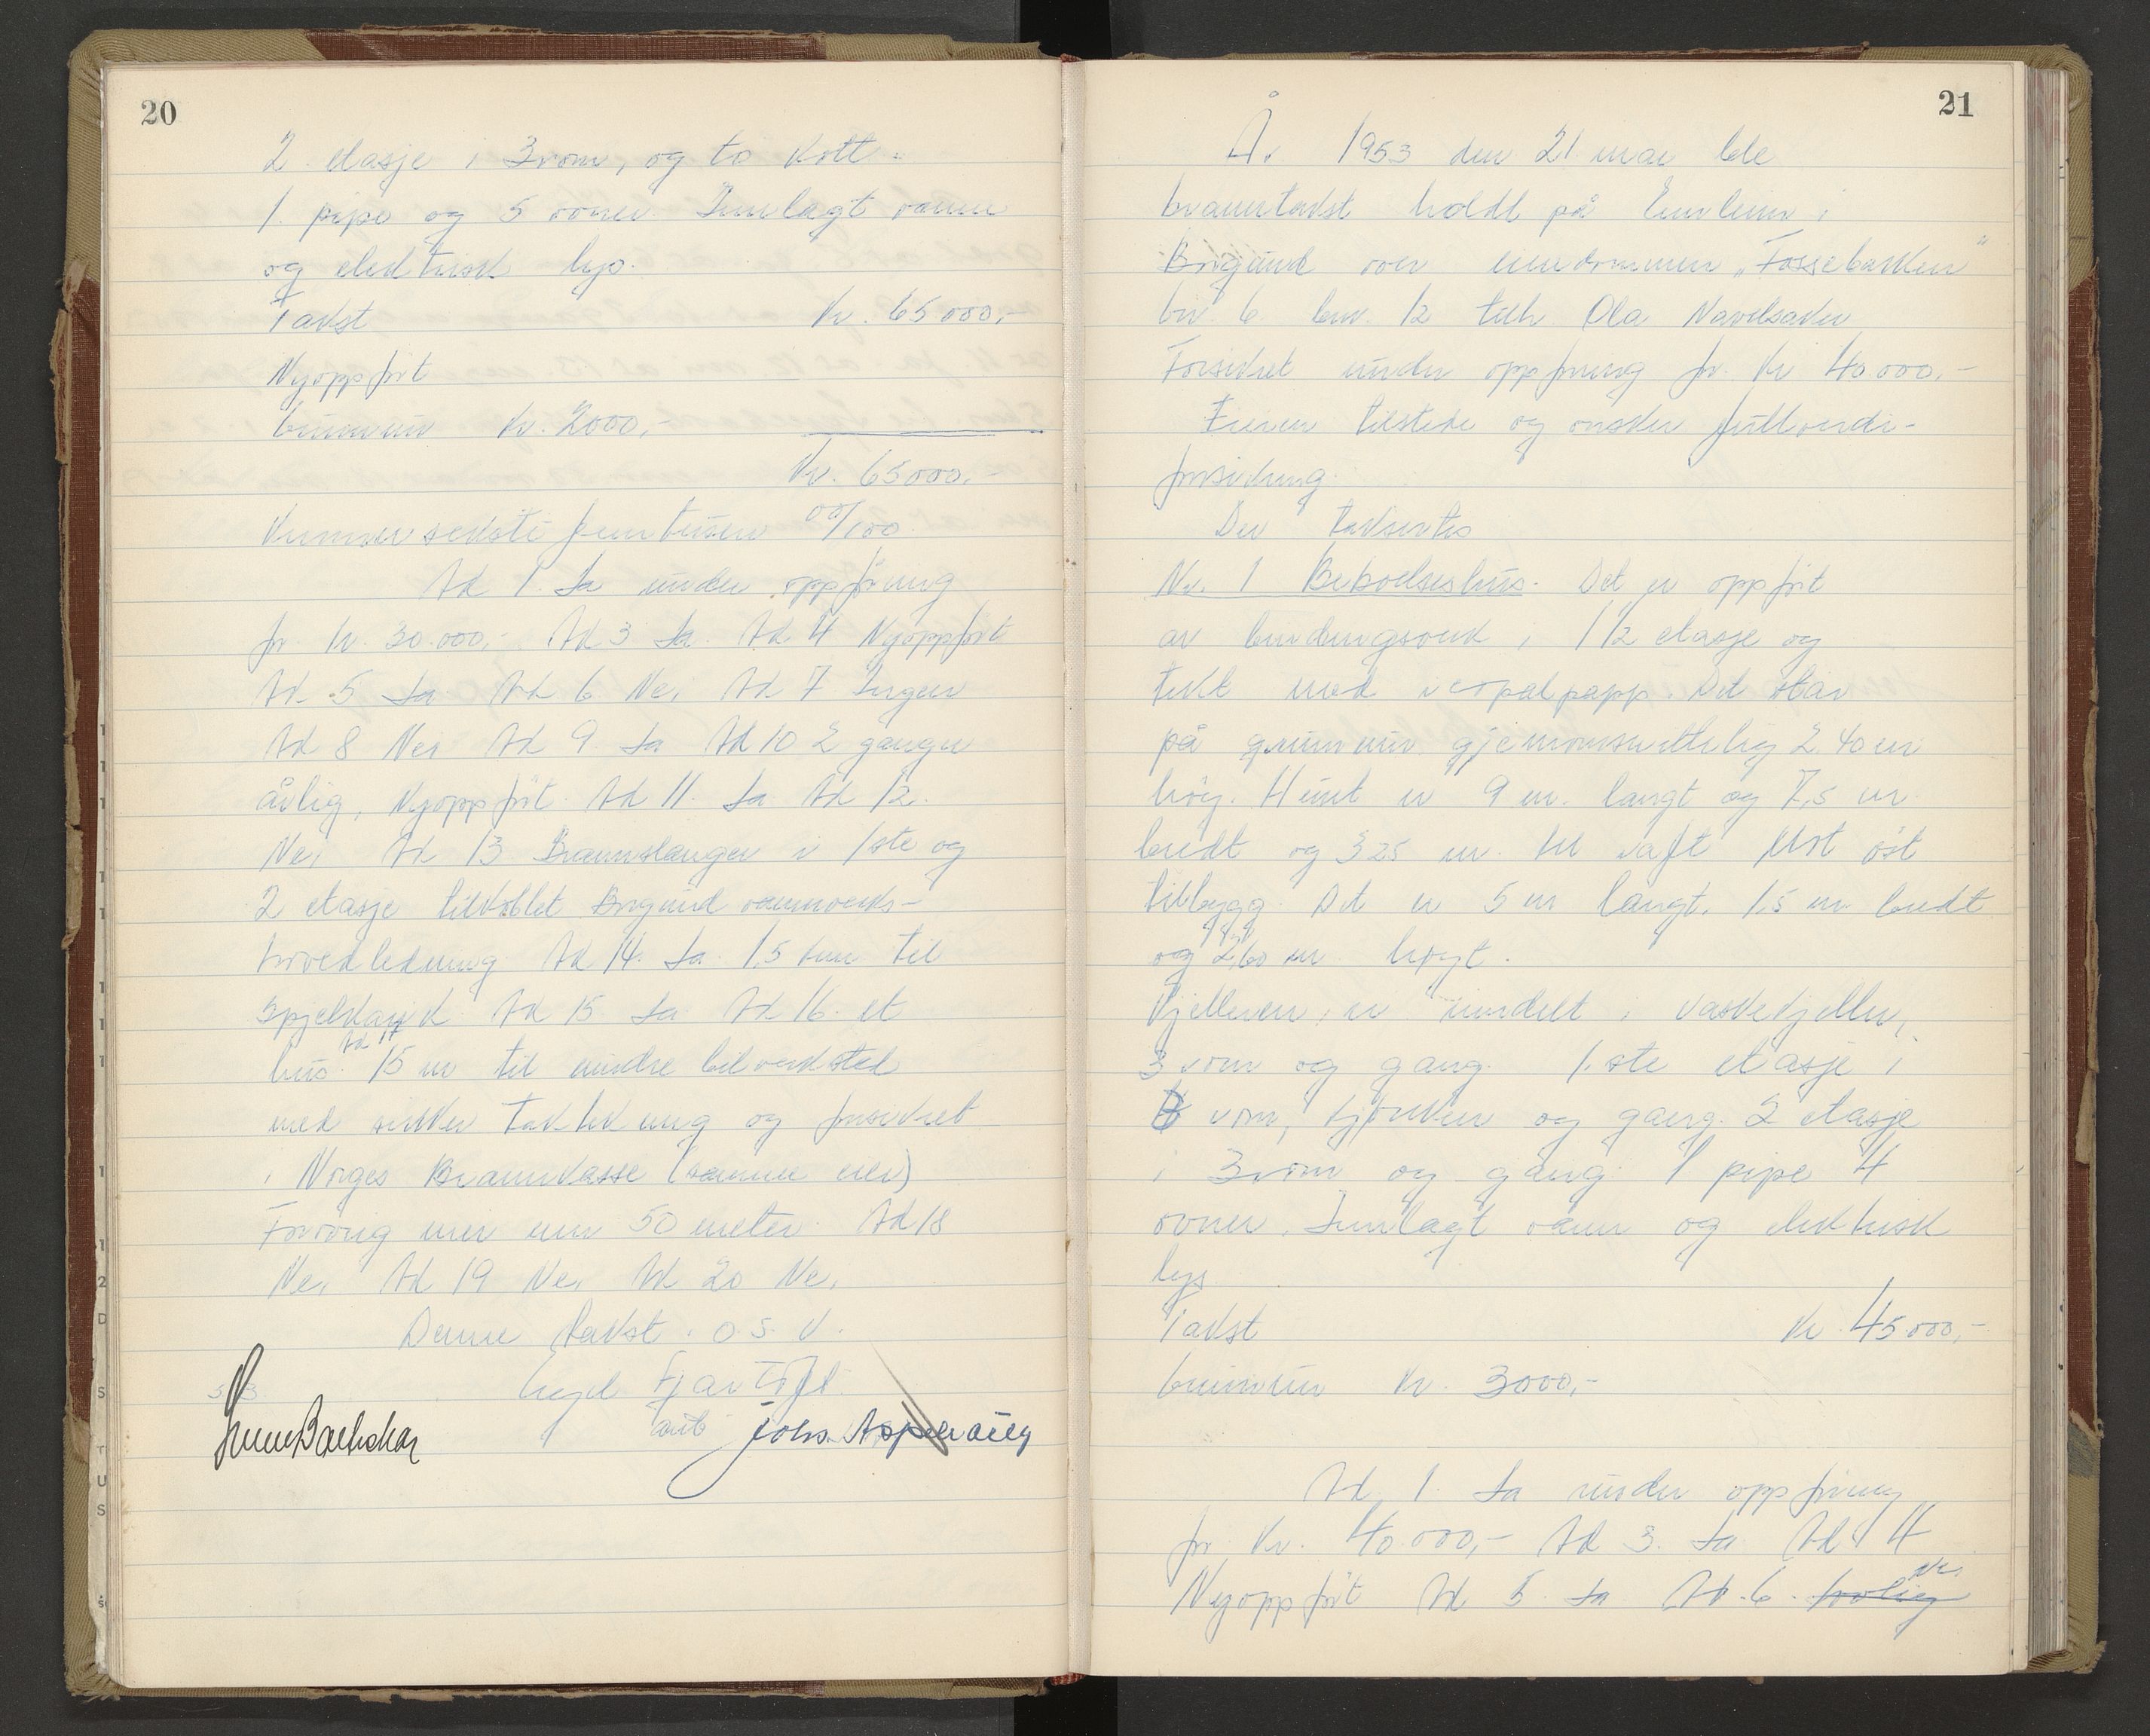 20
2 etasje i 3 rom, og to kott.
1. pipe og 5 ovner. Innlagt vann
og elektrisk lys.
Takst Kr. 65 000,-
Nyoppfört
brunnmur Kr. 2000,-
Kr. 65000.-
Kroner seksti femtusen 00/100
Ad 1. Ja under oppföring
for kr. 30.000,- Ad 3 Ja. Ad 4 Nyoppfört
Ad 5 Ja Ad 6 Nei Ad 7 Ingen
Ad 8 Nei Ad 9 Ja Ad 10 2 ganger
årlig, Nyoppfört. Ad 11. Ja Ad 12.
Nei Ad 13 Brannslanger i 1ste og
2 etasje tilkoblet Borgund vannverks-
hovedledning Ad 14. Ja. 1,5 km til
Spjelkavik Ad 15. Ja Ad 16. et
hus. Ad 17 15 m til mindre bilverksted
med sikker taktekning og forsikret
i Norges Brannkasse (samme eier)
Forövrig mer enn 50 meter. Ad 18
Nei Ad 19 Nei Ad 20 Nei.
Denne takst. o. s. v.
Fjørtoft
Johs. Aspehaug
21
År 1953 den 21 mai ble
branntakst holdt på Emblem i
Borgund over eiendommen „Fossebakken"
bnr. 12 tilh Ola
Forsikret under oppföring for Kr 40.000.-
Eieren tilstede og önsker fullverdi-
forsikring.
Der takserтes
Nr. 1 Beboelseshus. Det er oppfört
av bindingsverk i 1 1/2 etasje og
tekt med icopalpapp. Det står
på grunnmur gjennomsnittelig 2.40 m
höy. Huset er 9 m. langt og 7,5 m
bredt og 325 m. til raft Mot öst
tilbygg. Det er 5 m langt, 1,5 m bredt
og 2,60 m höyt.
Kjelleren er inndelt i vaskekjeller,
3 rom og gang. 1.ste etasje i
rom, kjökken og gang. 2 etasje
i 3 rom og gang. 1 pipe 4
ovner. Innlagt vann og elektrisk
lys
Takst Kr 45.000,-
brunnmur Kr. 3000,-
Ad. 1. Ja under oppföring
for Kr. 40.000,- Ad 3. Ja Ad 4
Nyoppfört Ad 5. Ja Ad. 6. Nei